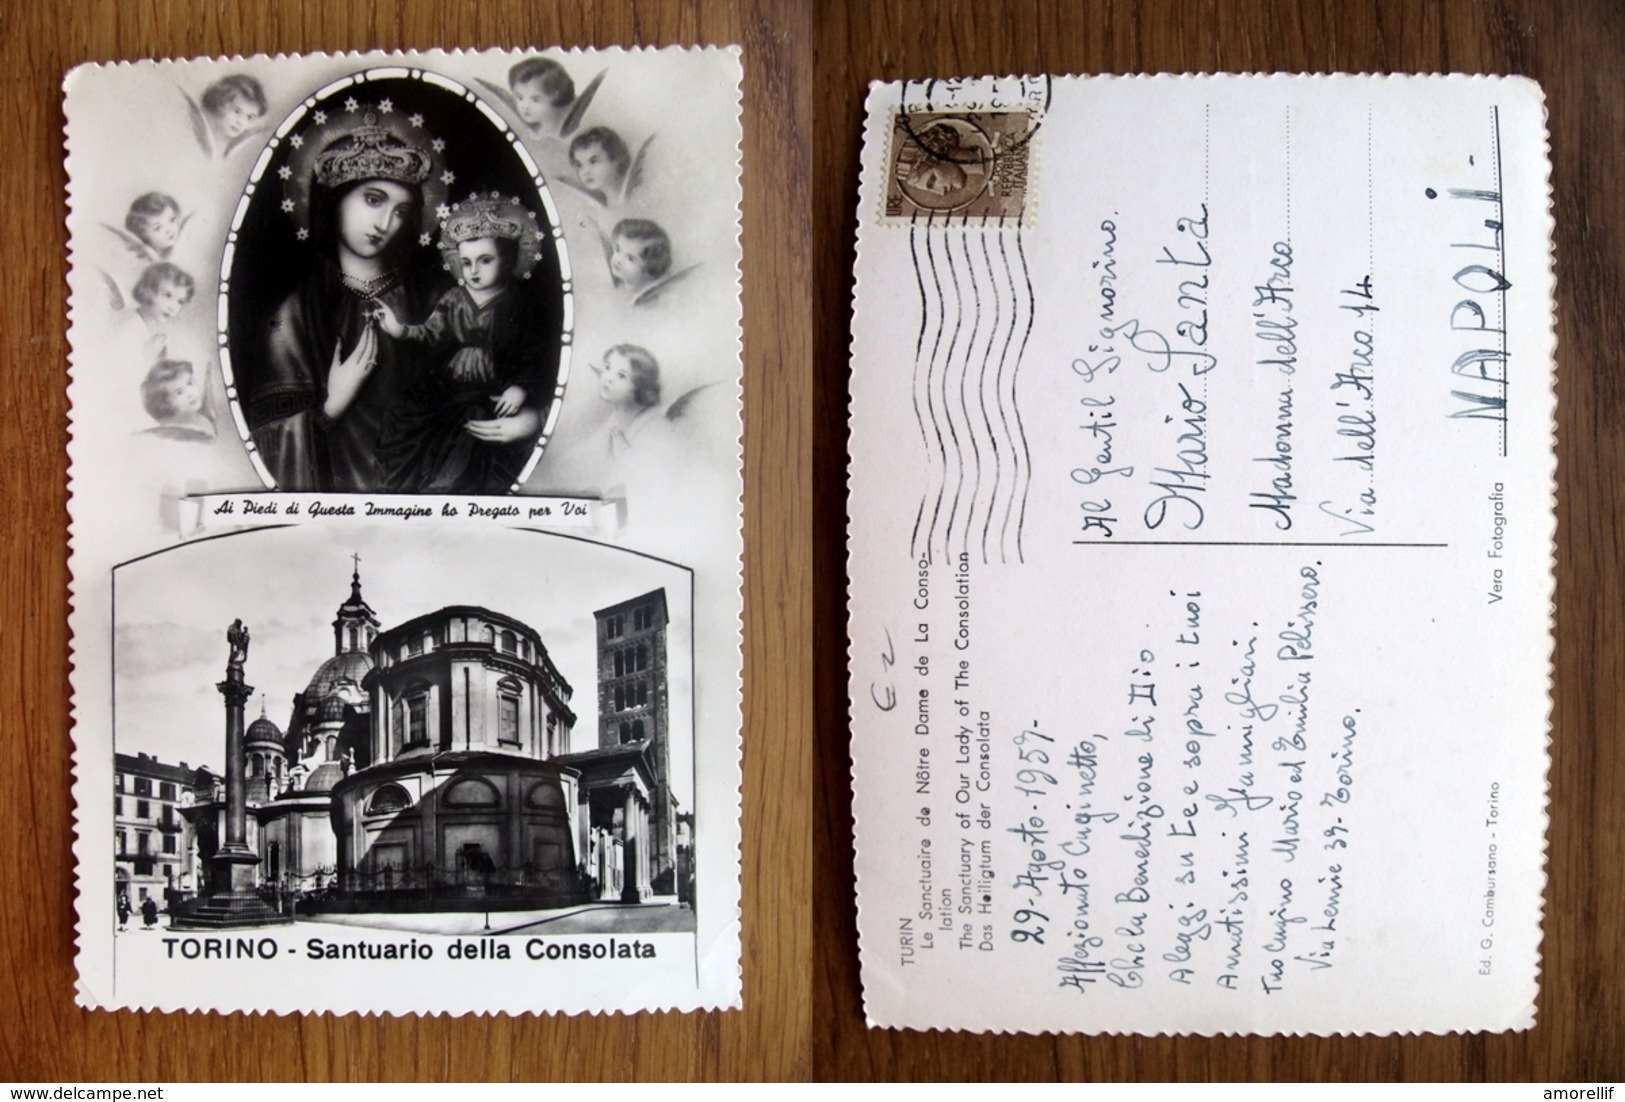 Ai Piedi di Questa Immagine ho Pregato per Voi
TORINO - Santuario della Consolata
TURIN
Le Sanctuaire de Nôtre Dame de La Conso-
lation
The Sanctuary of Our Lady of The Consolation
Das Heiligtum der Consolata
29-Agosto-1957-
Affezionato Cuginetto,
Che la Benedizione di Dio
Aleggi su te e sopra i tuoi
Amatissimi Famigliari.
tuo Cugino Mario ed Emilia Pelissero.
Via 39-Torino.
LIRE
REPVBBLICA
ITALIANA
Al Gentil Signorino.
Mario Santa
Madonna dell'Arco
Via dell'Arco 14
NAPOLI-
Vera Fotografia
Ed. G. Cambursano - Torino
delcampe.net
amorellif